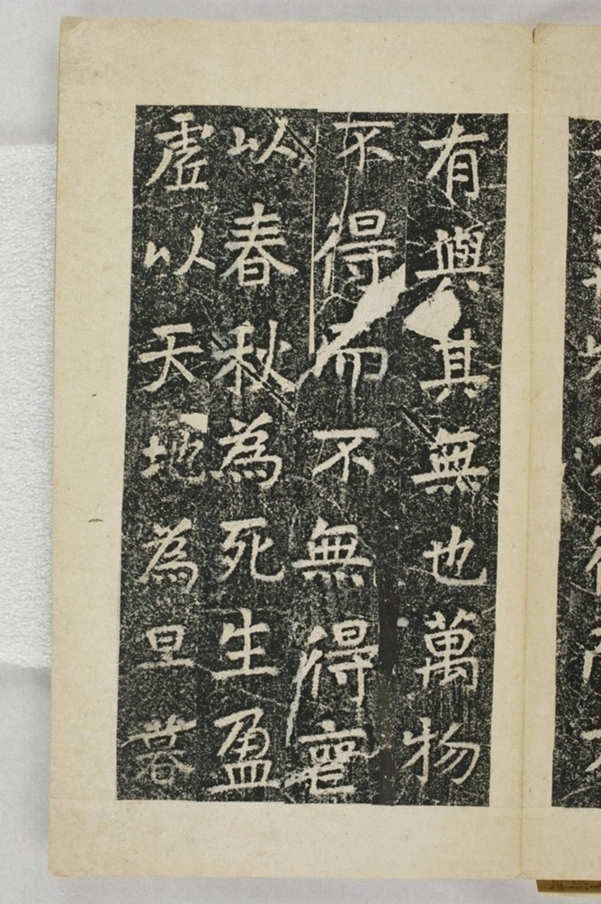 有與其無也萬物
不得而不無得
以春秋為死生盈
虛以天地為旦暮